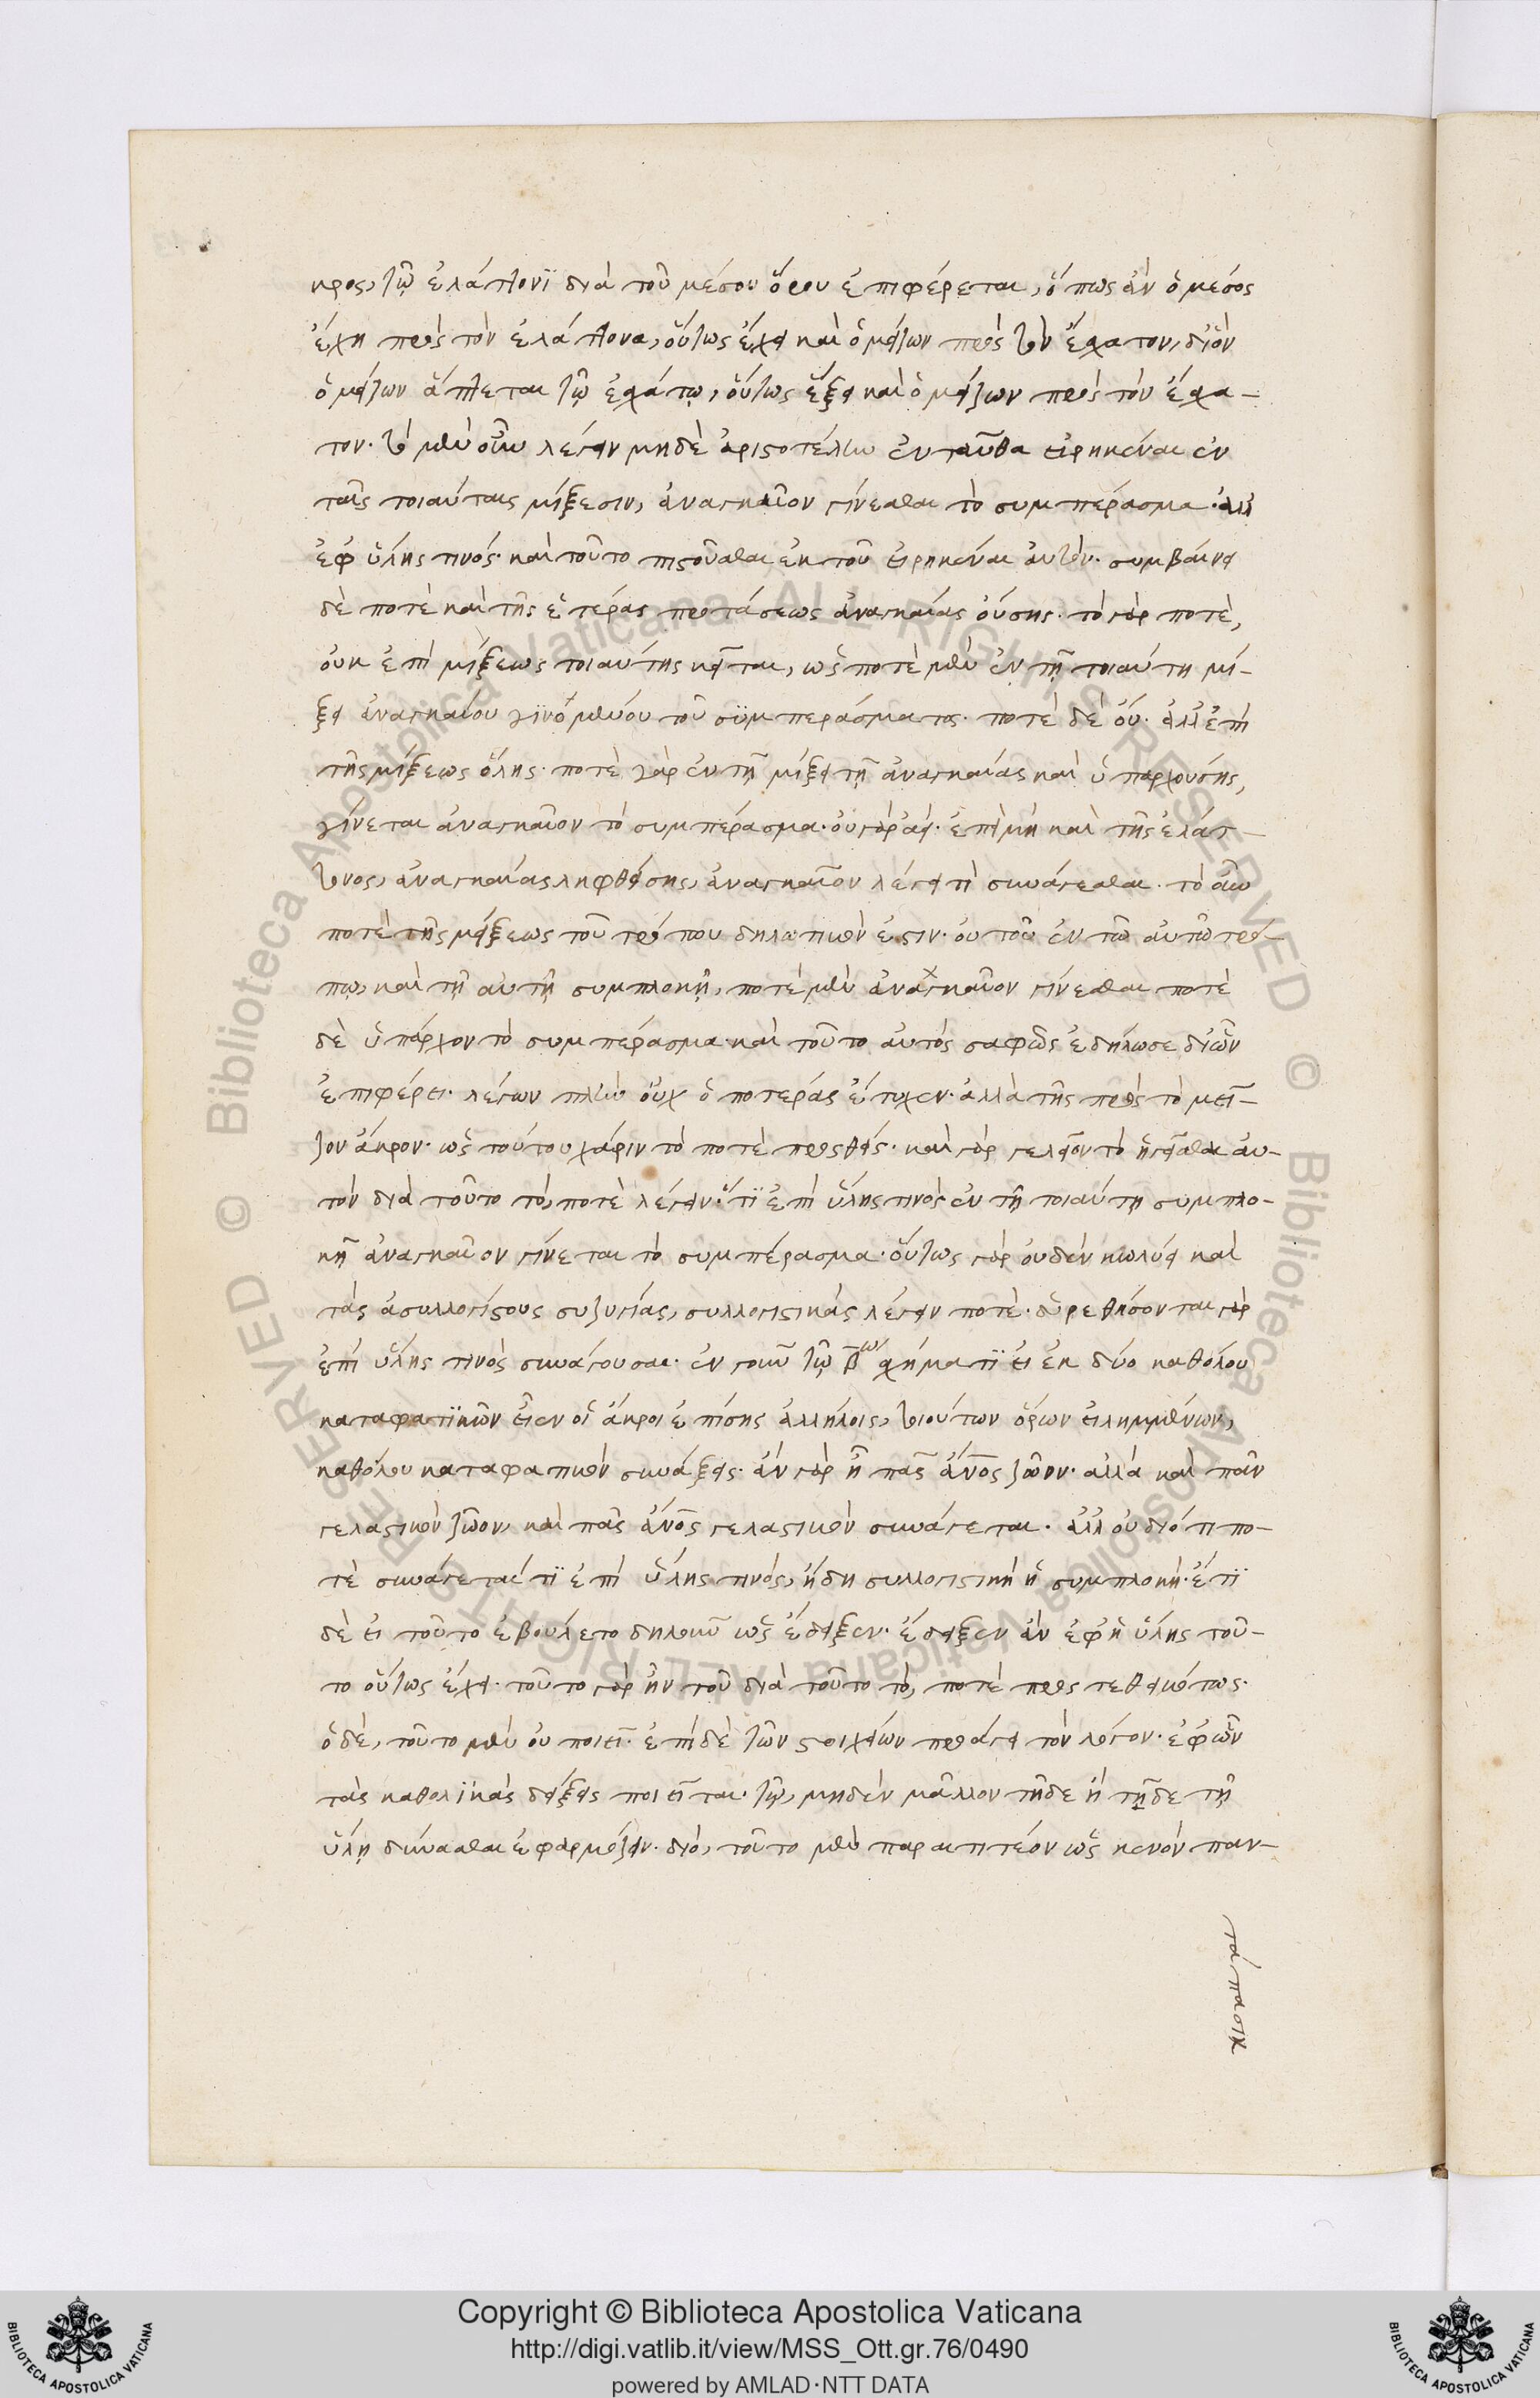 κρος, τῷ ἐλάττονϊ διὰ τοῦ μέσου ὅρου ἐπιφέρεται, ὅπως ἂν ὁ μέσος
ἔχη πρὸς τὸν ἐλάττονα, οὕτως ἔχει καὶ ὁ μείζων πρὸς τὸν ἔσχατον, δι' ὃν
ὁ μείζων ἅπτεται τῷ ἐσχάτῳ, οὕτως ἕξει καὶ ὁ μείζων πρὸς τὸν ἔσχα-
τον. τὸ μὲν οὖν λέγειν μηδὲ ἀριστοτέλην ἐνταῦθα εἰρηκέναι ἐν
ταῖς τοιαύταις μίξεσιν, ἀναγκαῖον γίνεσθαι τὸ συμπέρασμα. ἀλλ'
ἐφ' ὕλης τινός. καὶ τοῦτο πιστοῦσθαι ἐκ τοῦ εἰρηκέναι αὐτόν. συμβαίνει
δὲ ποτὲ καὶ τῆς ἑτέρας προτάσεως ἀναγκαίας οὔσης. τὸ γὰρ ποτὲ,
οὐκ ἐπὶ μίξεως τοιαύτης κεῖται, ὡς ποτὲ μὲν ἐν τῇ τοιαύτη μί-
ξει ἀναγκαίου γϊνομένου τοῦ συμπεράσματος. ποτὲ δὲ οὔ. ἀλλ' ἐπὶ
τῆς μίξεως ὅλης. ποτὲ γὰρ ἐν τῇ μίξει τῇ ἀναγκαίας καὶ ὑπαρχούσης,
γίνεται ἀναγκαῖον τὸ συμπέρασμα. οὐ γὰρ ἀεί. ἐπεὶ μὴ καὶ τῆς ἐλάτ-
τονος, ἀναγκαίας ληφθείσης, ἀναγκαῖον λέγει τὶ συνάγεσθαι. τὸ οὖν
ποτὲ τῆς μείξεως τοῦ τρόπου δηλωτικόν ἐστιν. οὐ τοῦ ἐν τῶ αὐτῶ τρό-
πῳ, καὶ τῇ αὐτῇ συμπλοκῇ, ποτὲ μὲν ἀναγκαῖον γίνεσθαι ποτὲ
δὲ ὑπάρχον τὸ συμπέρασμα. καὶ τοῦτο αὐτὸς σαφῶς ἐδήλωσε δι' ὧν
ἐπιφέρει. λέγων πλὴν οὐχ ὁποτεράς ἔτυχεν. ἀλλὰ τῆς πρὸς τὸ μεῖ-
ζον ἄκρον. ὡς τούτου χάριν τὸ ποτὲ προσθείς. καὶ γὰρ γελοῖον τὸ ἡγεῖσθαι αὐ-
τὸν διὰ τοῦτο τὸ, ποτὲ λέγειν. ὅτϊ ἐπὶ ὕλης τινὸς ἐν τῇ τοιαύτῃ συμπλο-
κῇ ἀναγκαῖον γίνεται τὸ συμπέρασμα. οὕτως γὰρ οὐδὲν κωλύει καὶ
τὰς ἀσυλλογίστους συζυγίας, συλλογιστικὰς λέγειν ποτὲ. εὑρεθήσονται γὰρ
ἐπὶ ὕλης τινὸς συνάγουσαι. ἐν γοῦν τῷ β̅ῳ σχήματϊ εἰ ἐκ δύο καθόλου
καταφατϊκῶν εἶεν οἱ ἄκροι ἐπίσης ἀλλήλοις, τοιούτων ὅρων εἰλημμένων,
καθόλου καταφατικὸν συνάξεις. ἂν γὰρ ᾖ πᾶς ἄν̅ος ζῶον. ἀλλὰ καὶ πᾶν
γελαστικὸν ζῶον, καὶ πᾶς ἄν̅ος γελαστικὸν συνάγεται. ἀλλ' οὐ διότι πο-
τὲ συνάγεταί τϊ ἐπὶ ὕλης τινὸς, ἤδη συλλογιστικὴ ἡ συμπλοκή. ἔτϊ
δὲ εἰ τοῦτο ἐβούλετο δηλοῦν ὡς ἔδειξεν. ἔδειξεν ἂν ἐφ' ἧ ὕλης τοῦ-
το οὕτως ἔχει. τοῦτο γὰρ ἦν τοῦ διὰ τοῦτο τὸ, ποτὲ προστεθεικότως.
ὁ δὲ, τοῦτο μὲν οὐ ποιεῖ. ἐπὶ δὲ τῶν στοιχείων προάγει τὸν λόγον. ἐφ' ὧν
τὰς καθολϊκὰς δείξεις ποιεῖται. τῷ, μηδὲν μᾶλλον τῇδε ἢ τῇδε τῇ
ὕλῃ δύνασθαι ἐφαρμόζειν. διὸ, τοῦτο μὲν παραιτητέον ὡς κενὸν παν-
τάπασιν